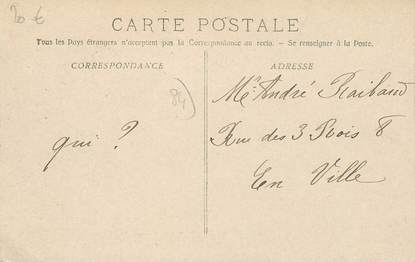 20 €
CARTE POSTALE
Tous les Pays étrangers n'acceptent pas la Correspondance au recto. - Se renseigner à la Poste.
CORRESPONDANCE
ADRESSE
84
qui ?
Mr André Raibaud
Rue des 3 Rois 8
En Ville